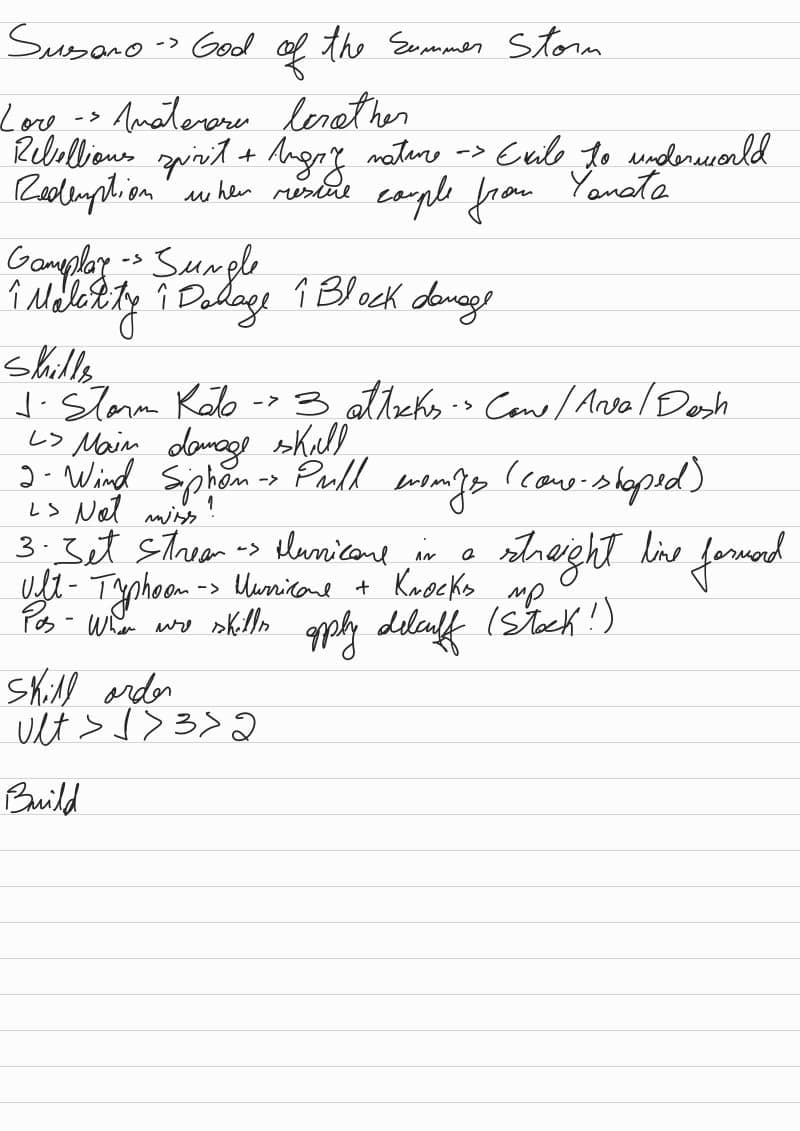 Susano -> God of the Summer Storm
Lore -> Amaterasu brother
Rebellious spirit + Angry nature -> Exile to underworld
Redemption when rescue couple from Yamata
Gameplay -> Jungle
↑ Mobility ↑ Damage ↑ Block damage
Skills
1. Storm Kata -> 3 attacks -> Cone/Area/Dash
↳ Main damage skill
2 - Wind Siphon -> Pull enemys (cone-shaped)
↳ Not miss!
3. Jet Stream -> Hurricane in a straight line forward
Ult - Typhoon -> Hurricane + Knocks up
Pas - When use skills apply debuff (Stack!)
Skill order
Ult > 1 > 3 > 2
Build